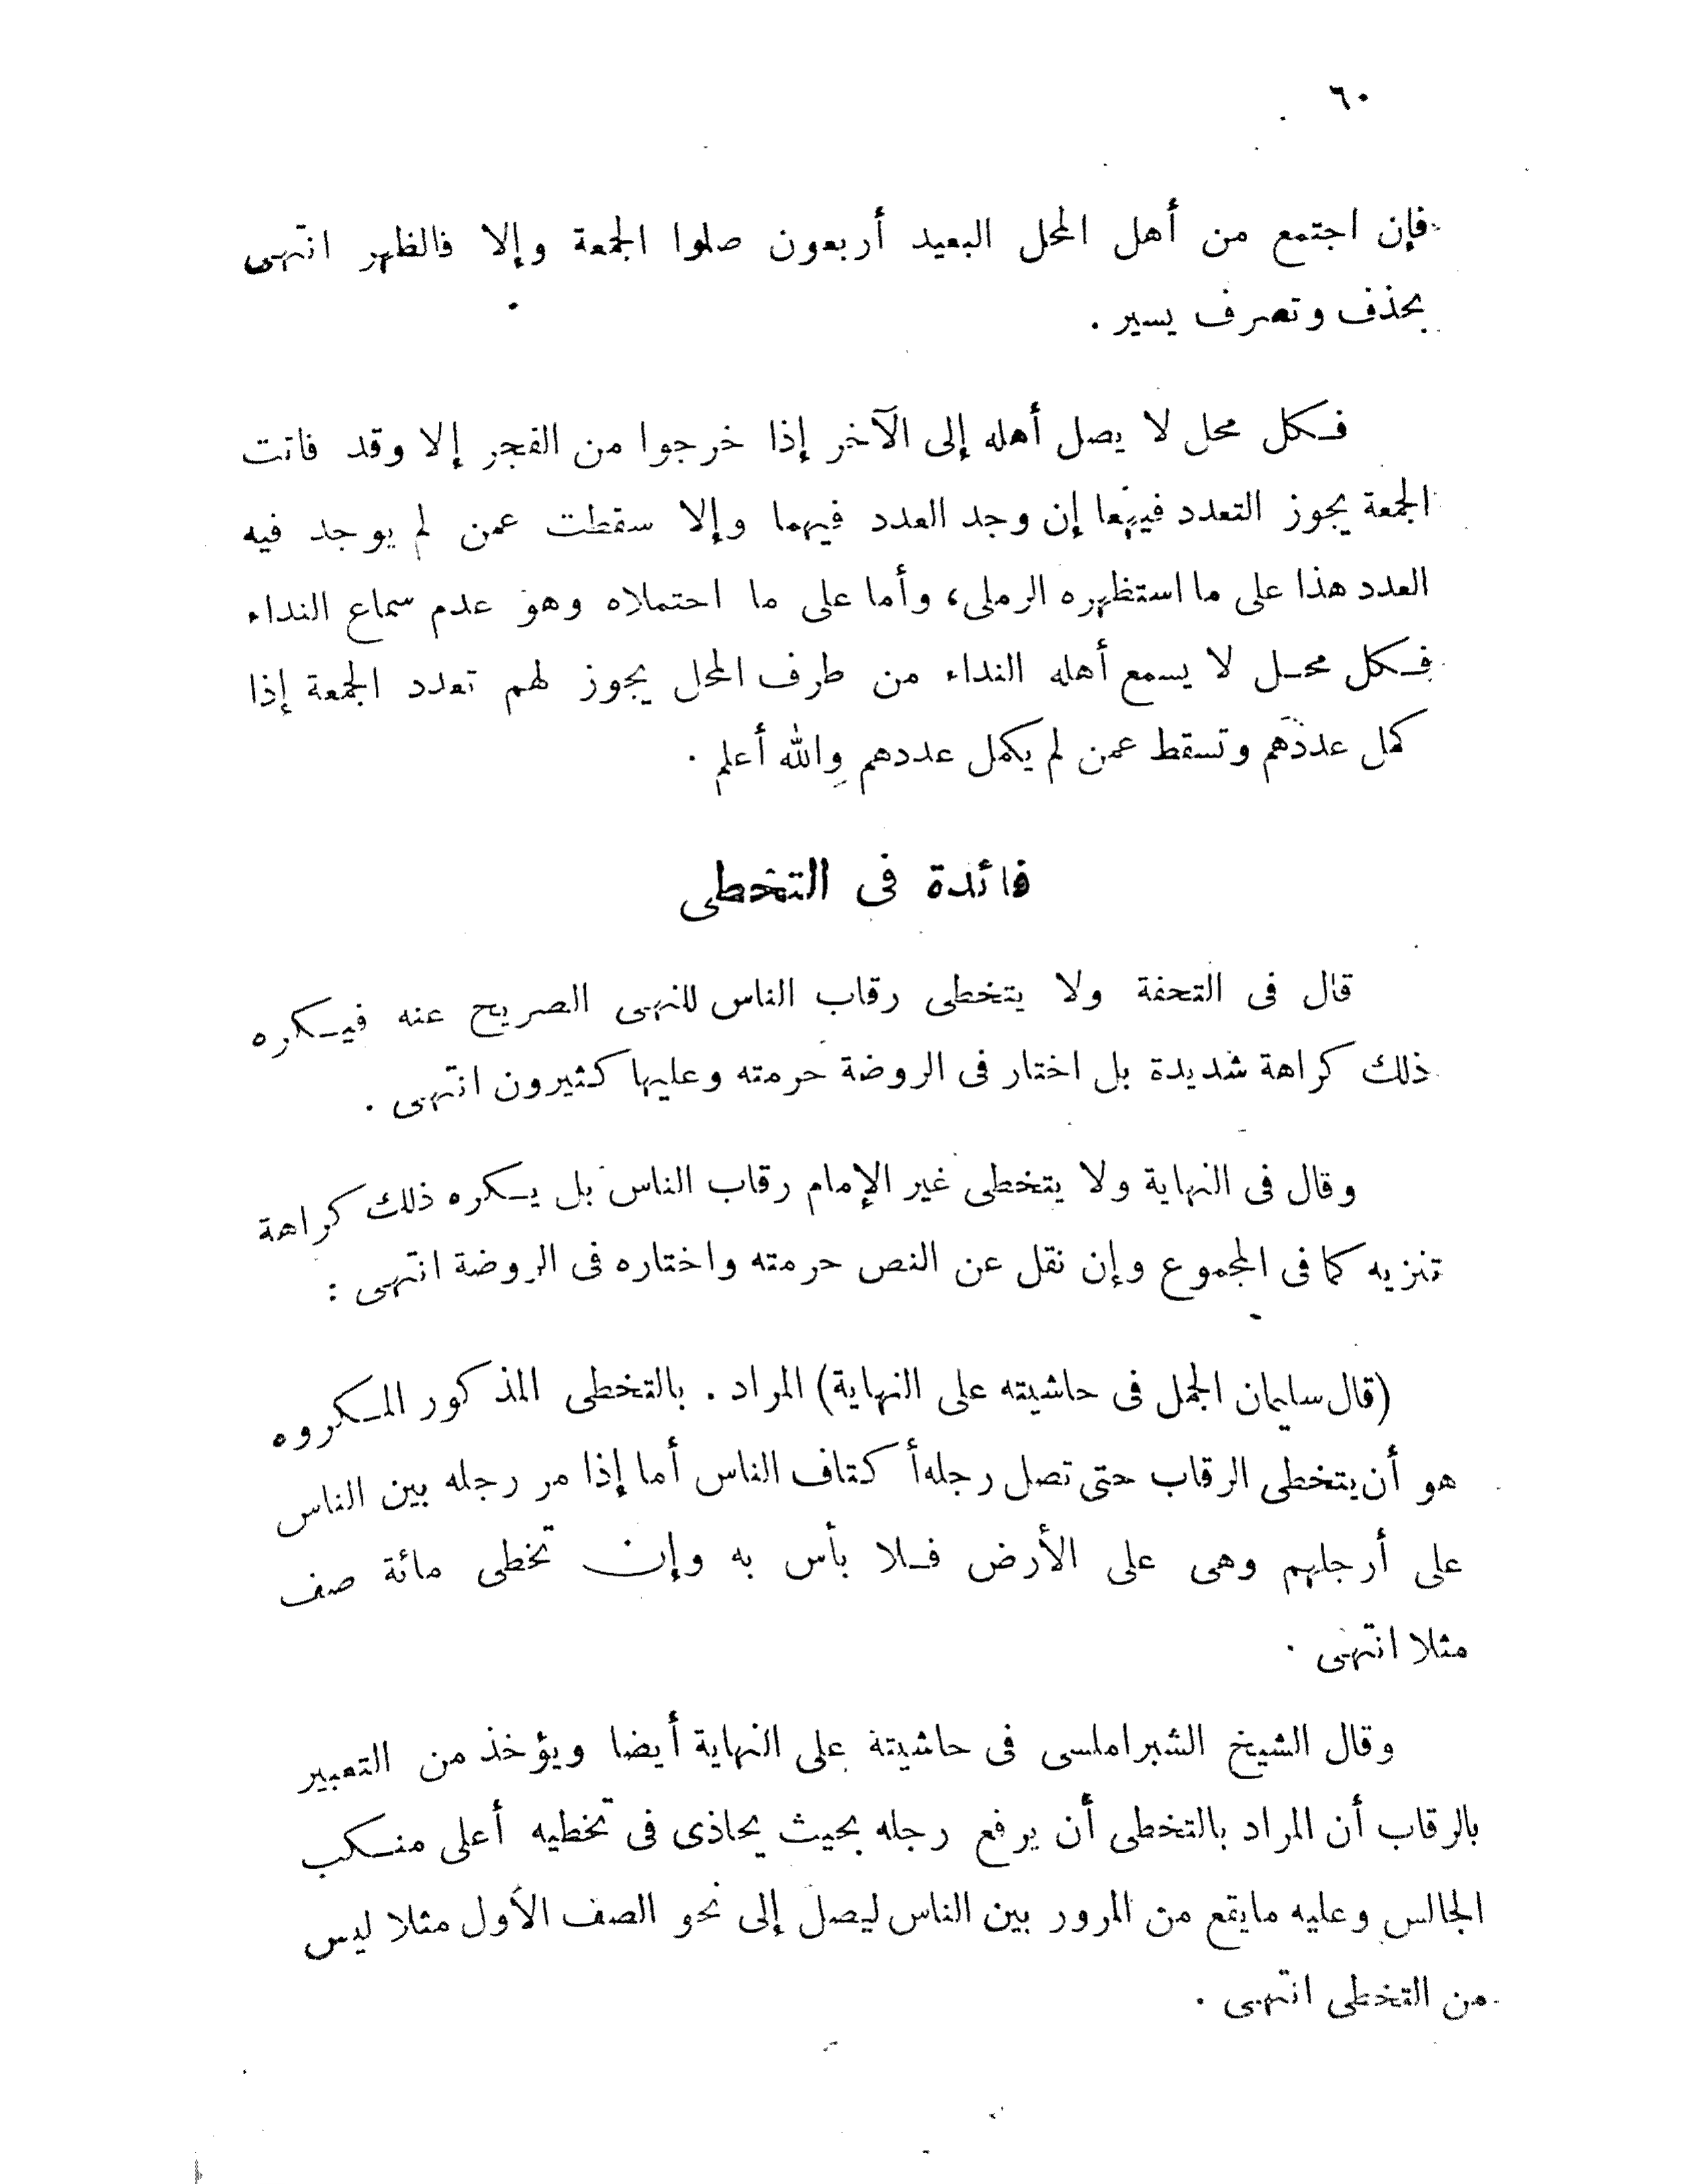 ٦٠
فإن اجتمع من أهل المحل البعيد أربعون صلوا الجمعة وإلا فالظهر انتهى
بحذف وتصرف يسير .
فكل محل لا يصل أهله إلى الآخر إذا خرجوا من الفجر إلا وقد فاتت
الجمعة يجوز التعدد فيهما إن وجد العدد فيهما وإلا سقطت عمن لم يوجد فيه
العدد هذا على ما استظهره الرملى، وأما على ما احتملاه وهو عدم سماع النداء
فكل محل لا يسمع أهله النداء من طرف المحل يجوز لهم تعدد الجمعة إذا
كمل عددهم وتسقط عمن لم يكمل عددهم والله أعلم .
فائدة فى التخطى
قال فى التحفة ولا يتخطى رقاب الناس للنهى الصريح عنه فيكره
ذلك كراهة شديدة بل اختار فى الروضة حرمته وعليها كثيرون انتهى .
وقال فى النهاية ولا يتخطى غير الإمام رقاب الناس بل يكره ذلك كراهة
تنزيه كما فى المجموع وإن نقل عن النص حرمته واختاره فى الروضة انتهى :
(قال سليمان الجمل فى حاشيته على النهاية) المراد . بالتخطى المذكور المكروه
هو أن يتخطى الرقاب حتى تصل رجله أكتاف الناس أما إذا مر رجله بين الناس
على أرجلهم وهى على الأرض فلا بأس به وإن تخطى مائة صف
مثلا انتهى .
وقال الشيخ الشبراملسى فى حاشيتة على النهاية أيضا ويؤخذ من التعبير
بالرقاب أن المراد بالتخطى أن يرفع رجله بحيث يحاذى فى تخطيه أعلى منكب
الجالس وعليه مايقع من المرور بين الناس ليصل إلى نحو الصف الأول مثلا ليس
من التخطى انتهى .